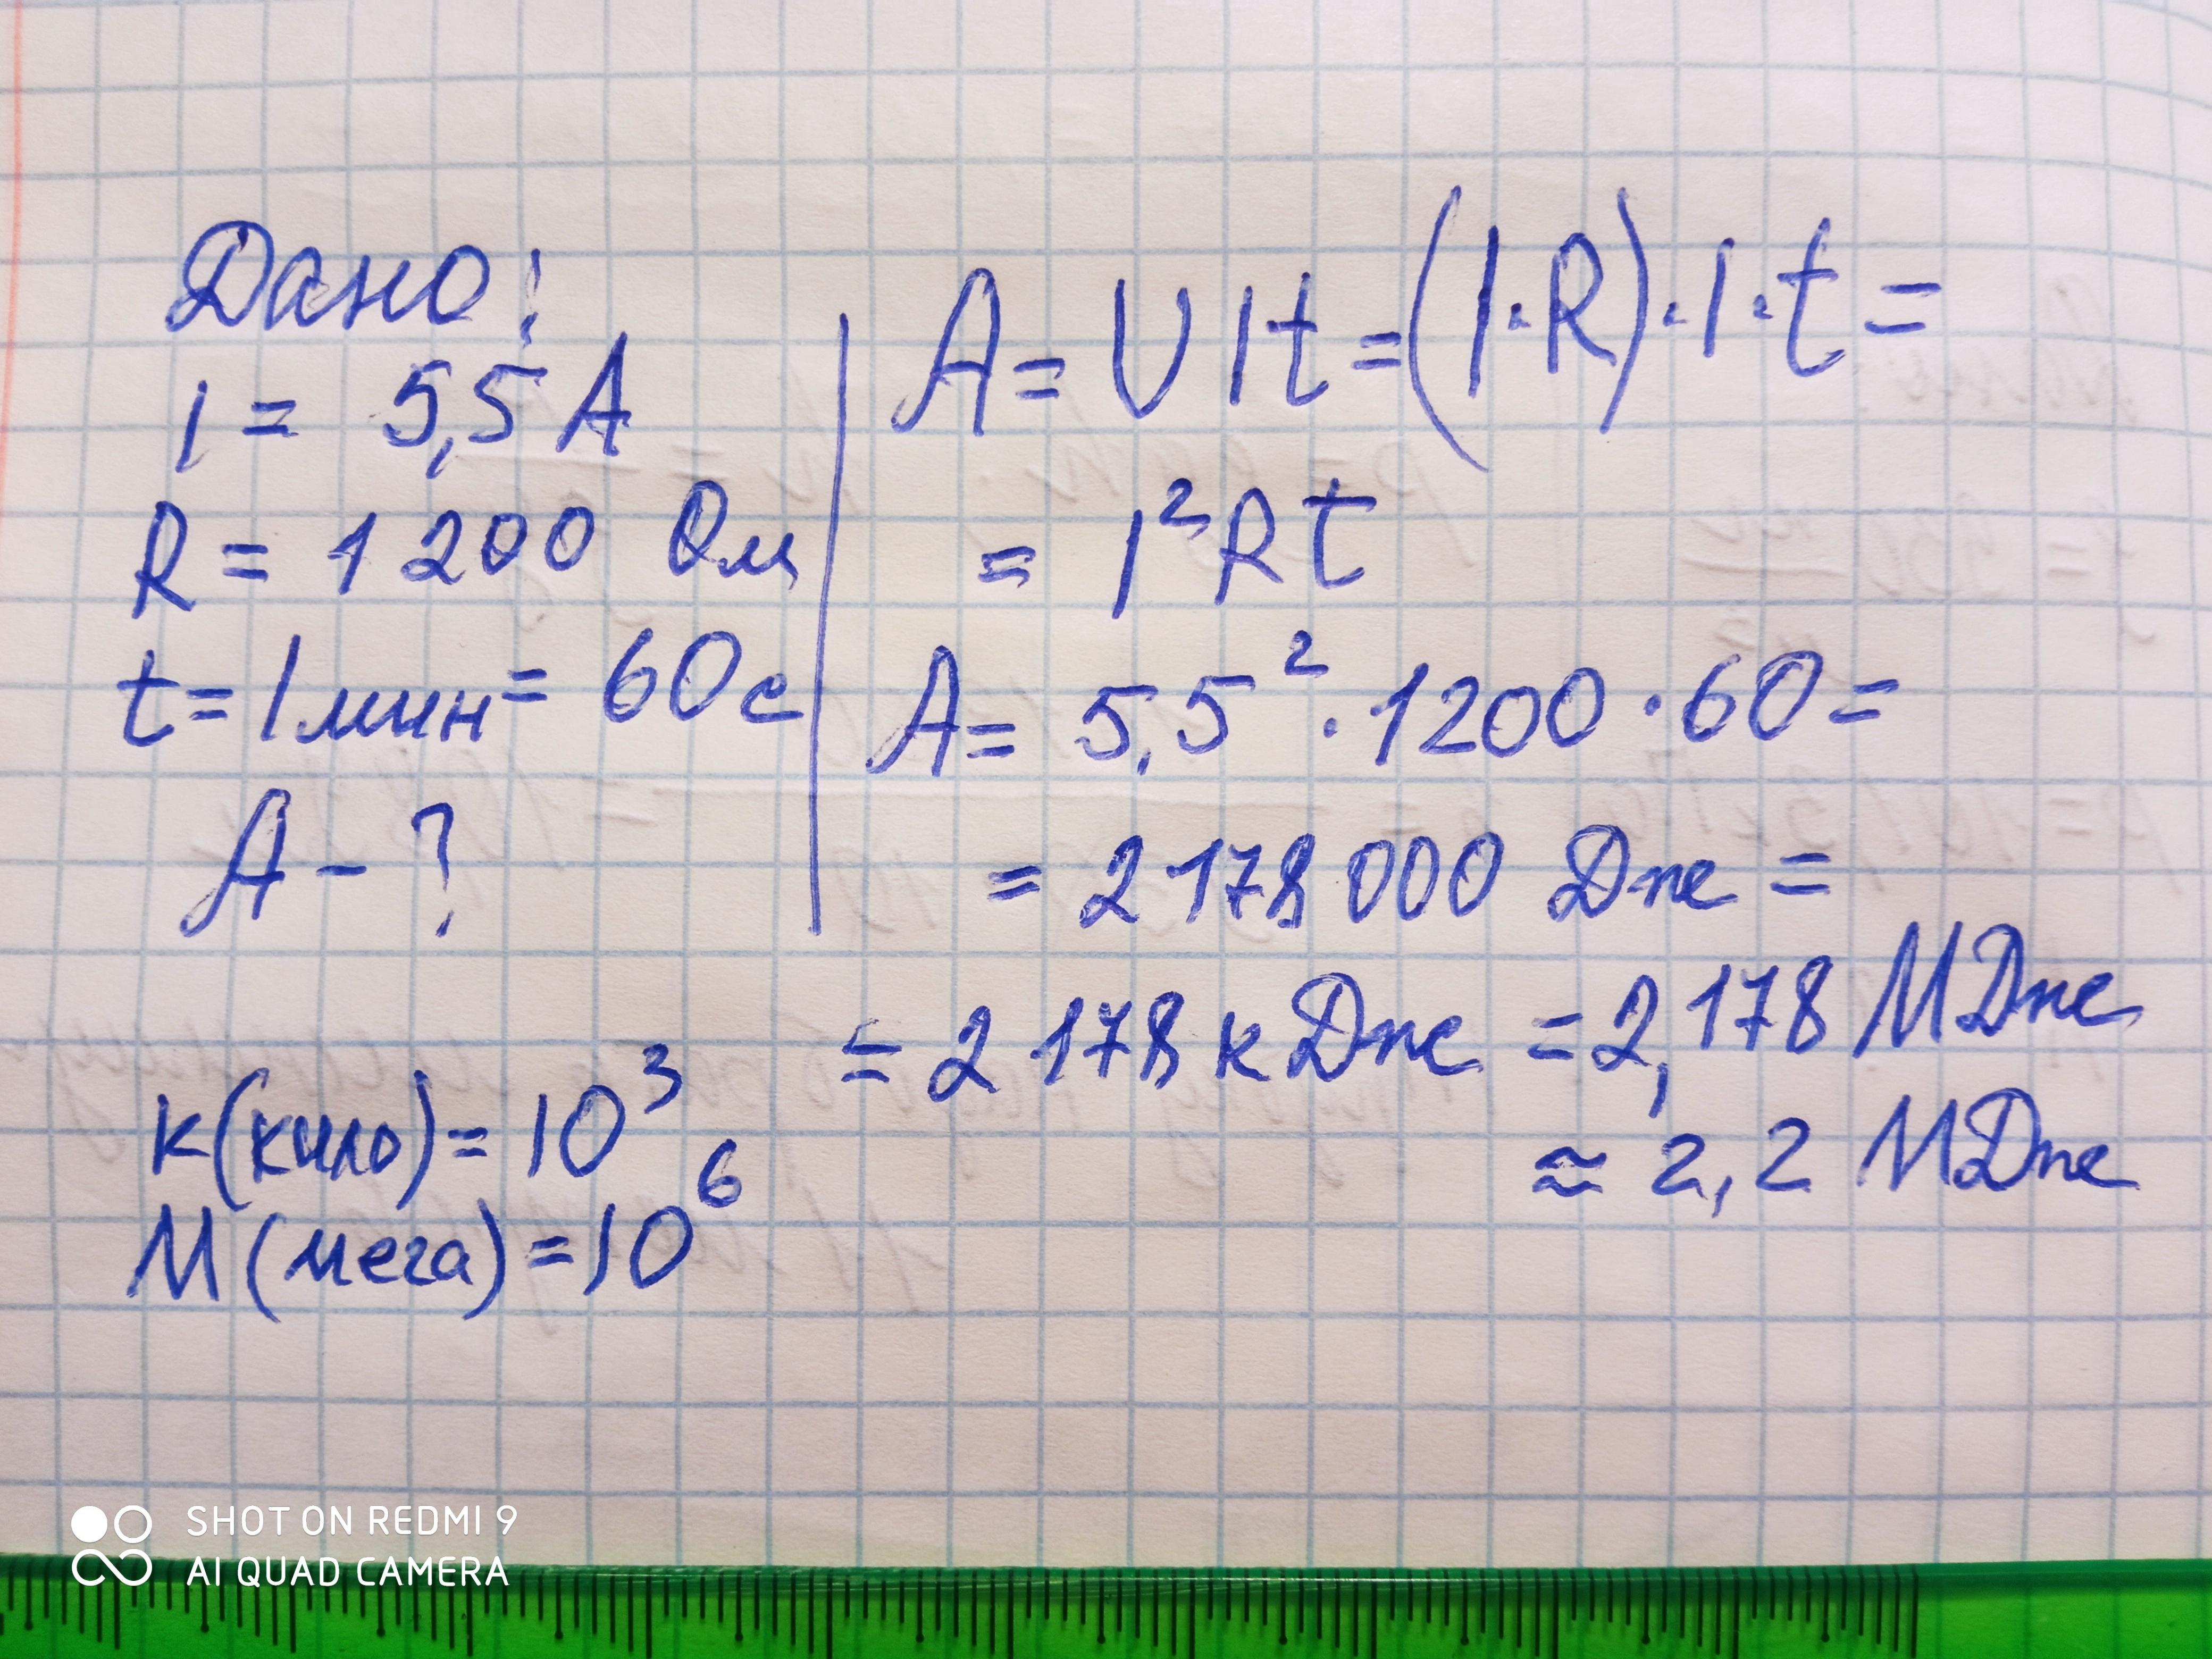 Дано:
I = 5,5 А
R = 1200 Ом
t = 1 мин = 60 с
А - ?
A = UIt = (I·R)·I·t =
= I²Rt
A = 5,5²·1200·60 =
= 2178000 Дж =
= 2178 кДж = 2,178 МДж
≈ 2,2 МДж
к(кило) = 10³
М(мега) = 10⁶
SHOT ON REDMI 9
AI QUAD CAMERA